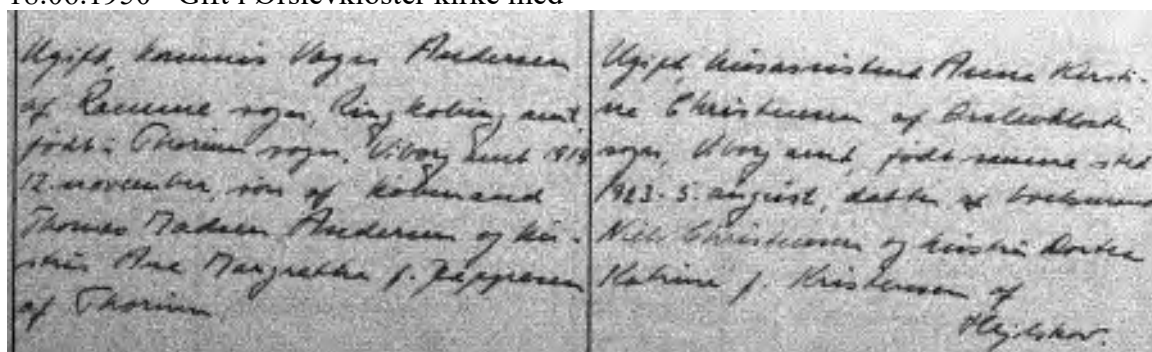 18.06.1950 - Gift i Ørslevkloster kirke med
Ugift, kommis Vagn Andersen
af Ramme sogn, Ringkøbing amt,
født i Thorum sogn, Viborg amt 1919
12. november, søn af købmand
Thomas Madsen Andersen og hu-
stru Ane Margrethe f. Jeppesen
af Thorum.
Ugift, husassistent Anna Kirsti-
ne Christensen af Ørslevkloster
sogn, Viborg amt, født samme sted
1923. 5. august, datter af
Niels Christensen og hustru Dortea
Katrine f. Kristensen af
Hejlskov.